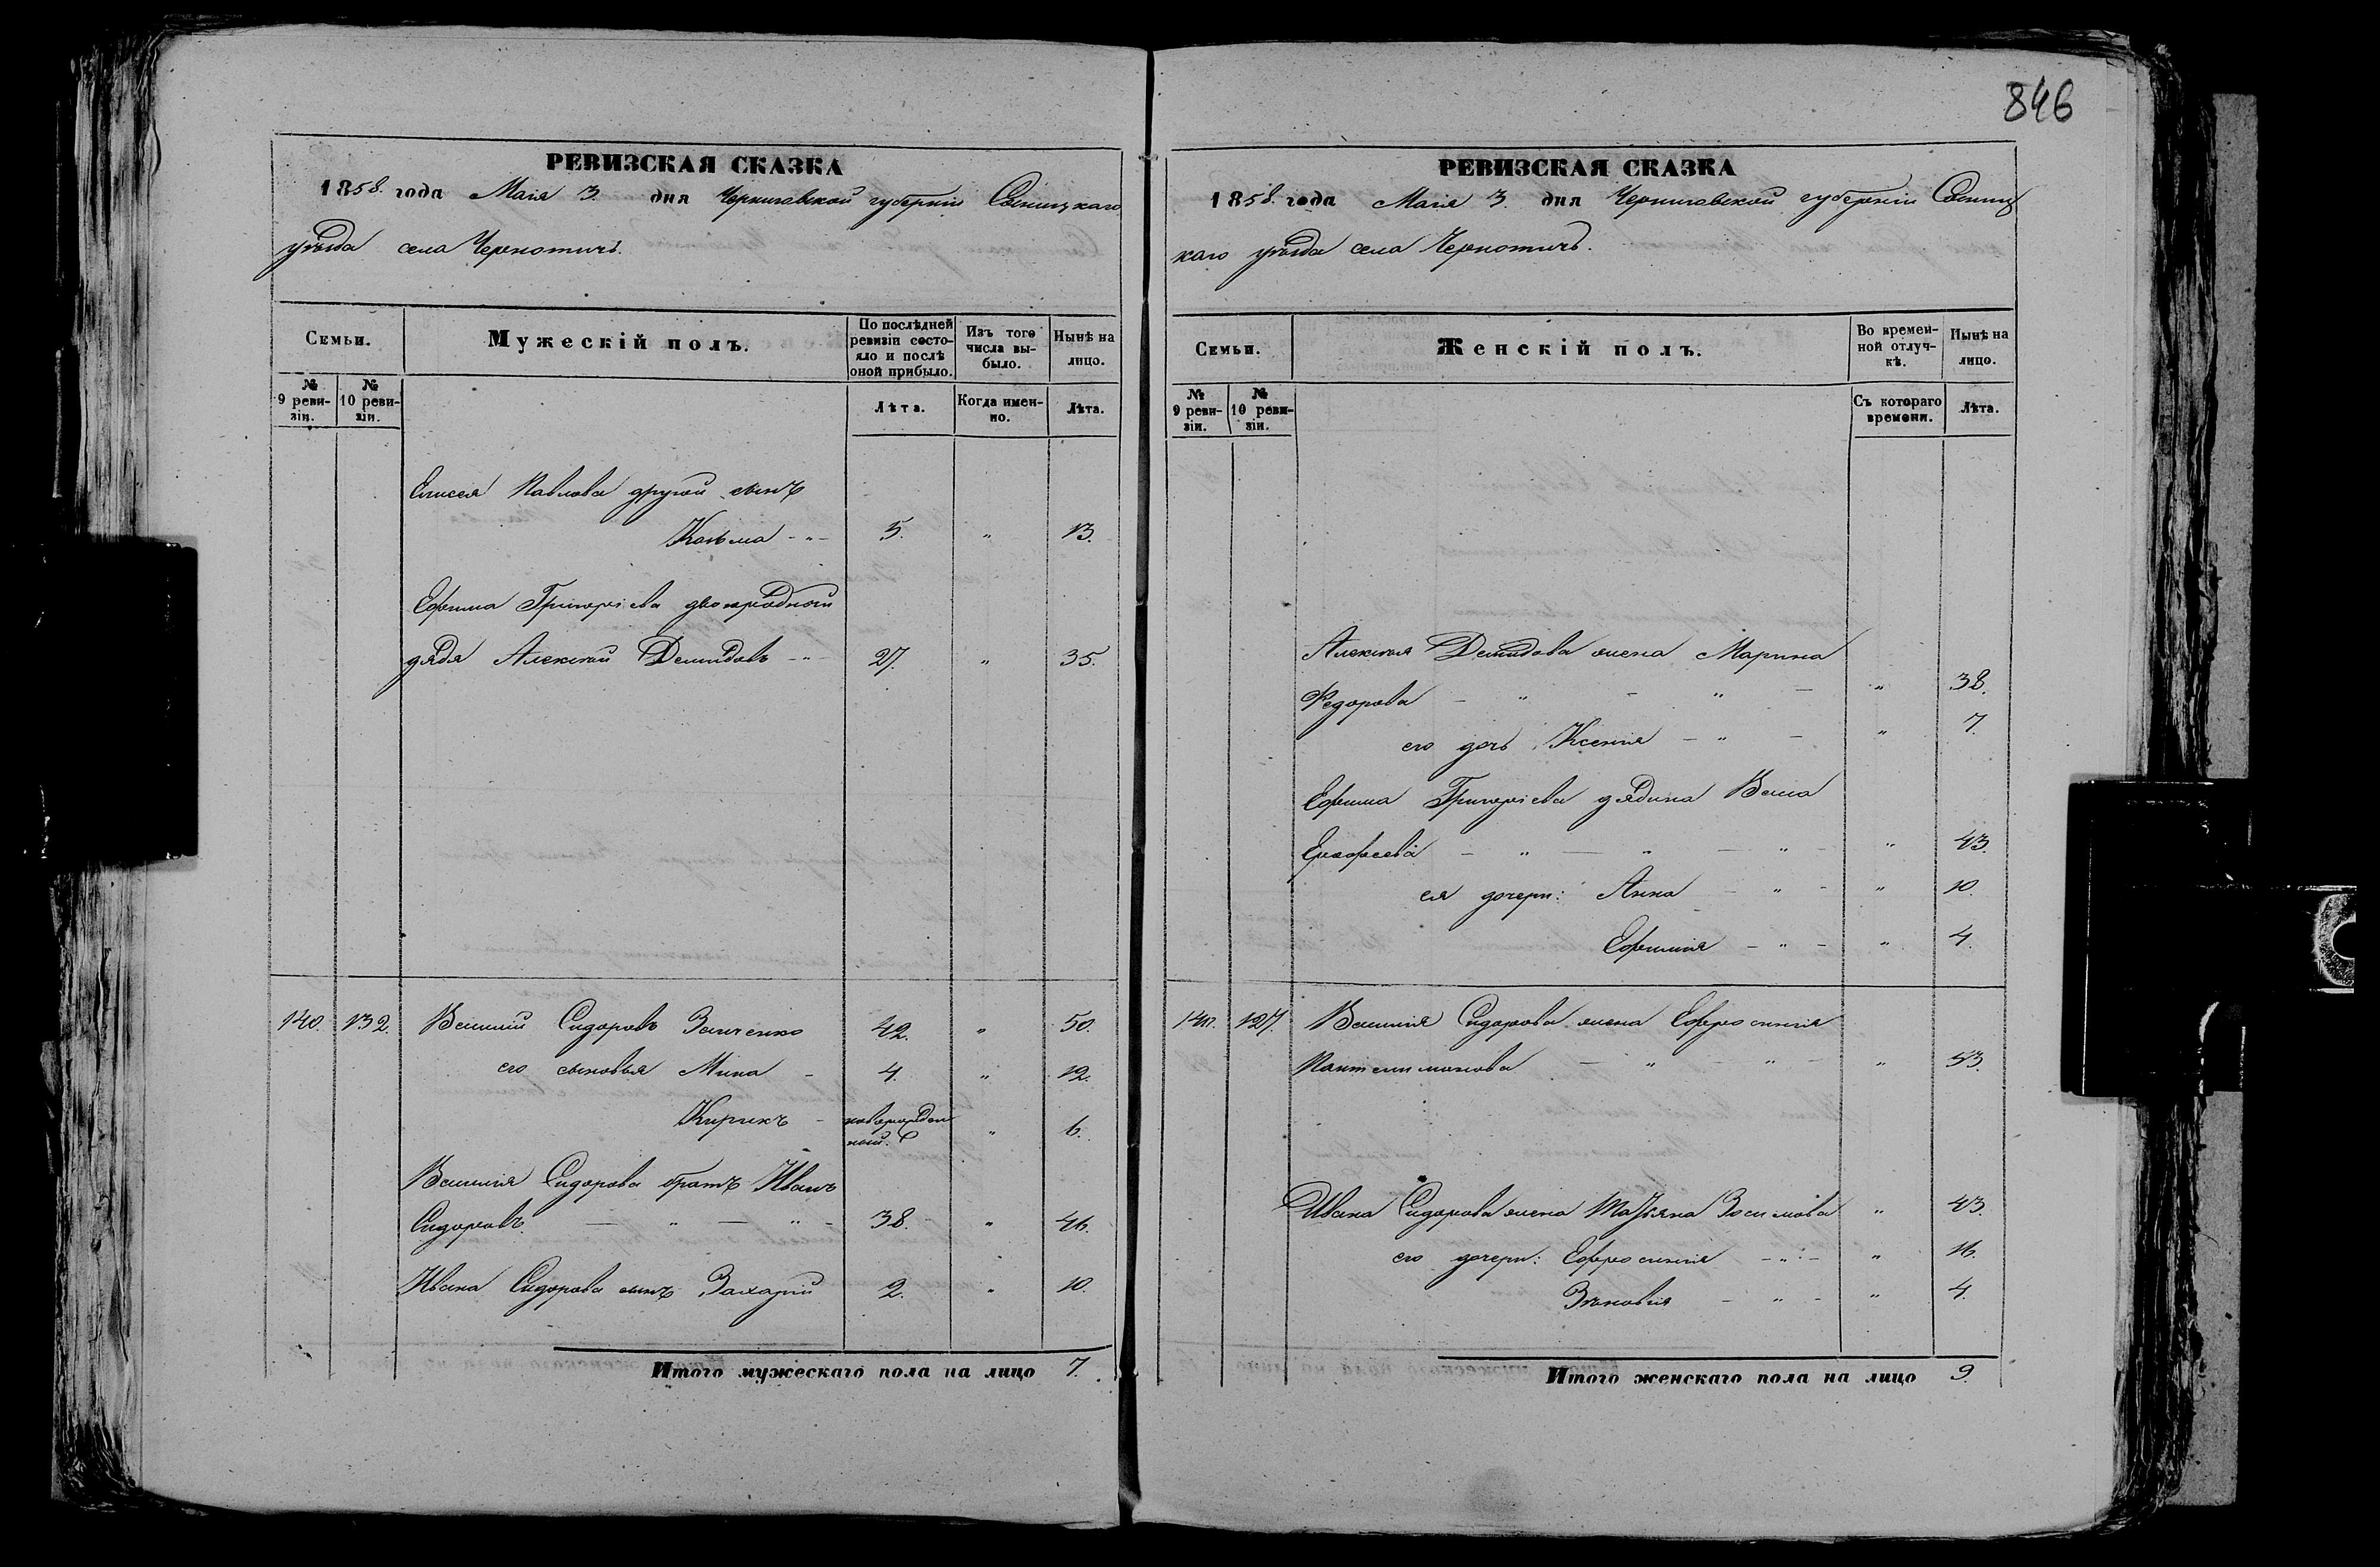 846
РЕВИЗСКАЯ СКАЗКА
1858. года Маія 3. дня Черниговской губерніи Сосницкаго
уѣзда села Чернотичъ.
Семьи.
Мужескій полъ.
По послѣдней ревизіи состояло и послѣ оной прибыло.
Изъ того числа выбыло.
Нынѣ на лицо.
№ 9 ревизіи.
№ 10 ревизіи.
Лѣта.
Когда именно.
Лѣта.
Елисея Павлова другой сынъ
Козьма - " - 5. " 13.
Ефима Григоріева двоюродной
дядя Алексѣй Демидовъ - " - 27. " 35.
140. 132. Василій Сидоровъ Заиченко 42. " 50.
его сыновья Мина - 4. " 12.
Кирикъ - новорожден
ный. " 6.
Василія Сидорова братъ Иванъ
Сидоровъ. — " — " - 38. " 46.
Ивана Сидорова сынъ Захарій 2. " 10.
Итого мужескаго пола на лицо 7.
РЕВИЗСКАЯ СКАЗКА
1858. года Маія 3. дня Черниговской губерніи Сосниц
каго уѣзда села Чернотичъ.
Семьи.
Женскій полъ.
Во временной отлучкѣ.
Нынѣ на лицо.
№ 9 ревизіи.
№ 10 ревизіи.
Съ котораго времени.
Лѣта.
Алексѣя Демидова жена Марина
Федорова — " — " — " 38.
его дочь Ксенія - " — " 7.
Ефима Григоріева дядина
— " — " — " - " 43.
ея дочери: Анна - " - " 10.
Ефимія - " - " 4.
140. 127. Василія Сидорова жена Ефросинія
Пантелимонова — " — " - " 53.
Ивана Сидорова жена Татьяна Зосимова " 43.
его дочери: Ефросинія - " - " 16.
Зѣновія - " - " 4.
Итого женскаго пола на лицо 9.